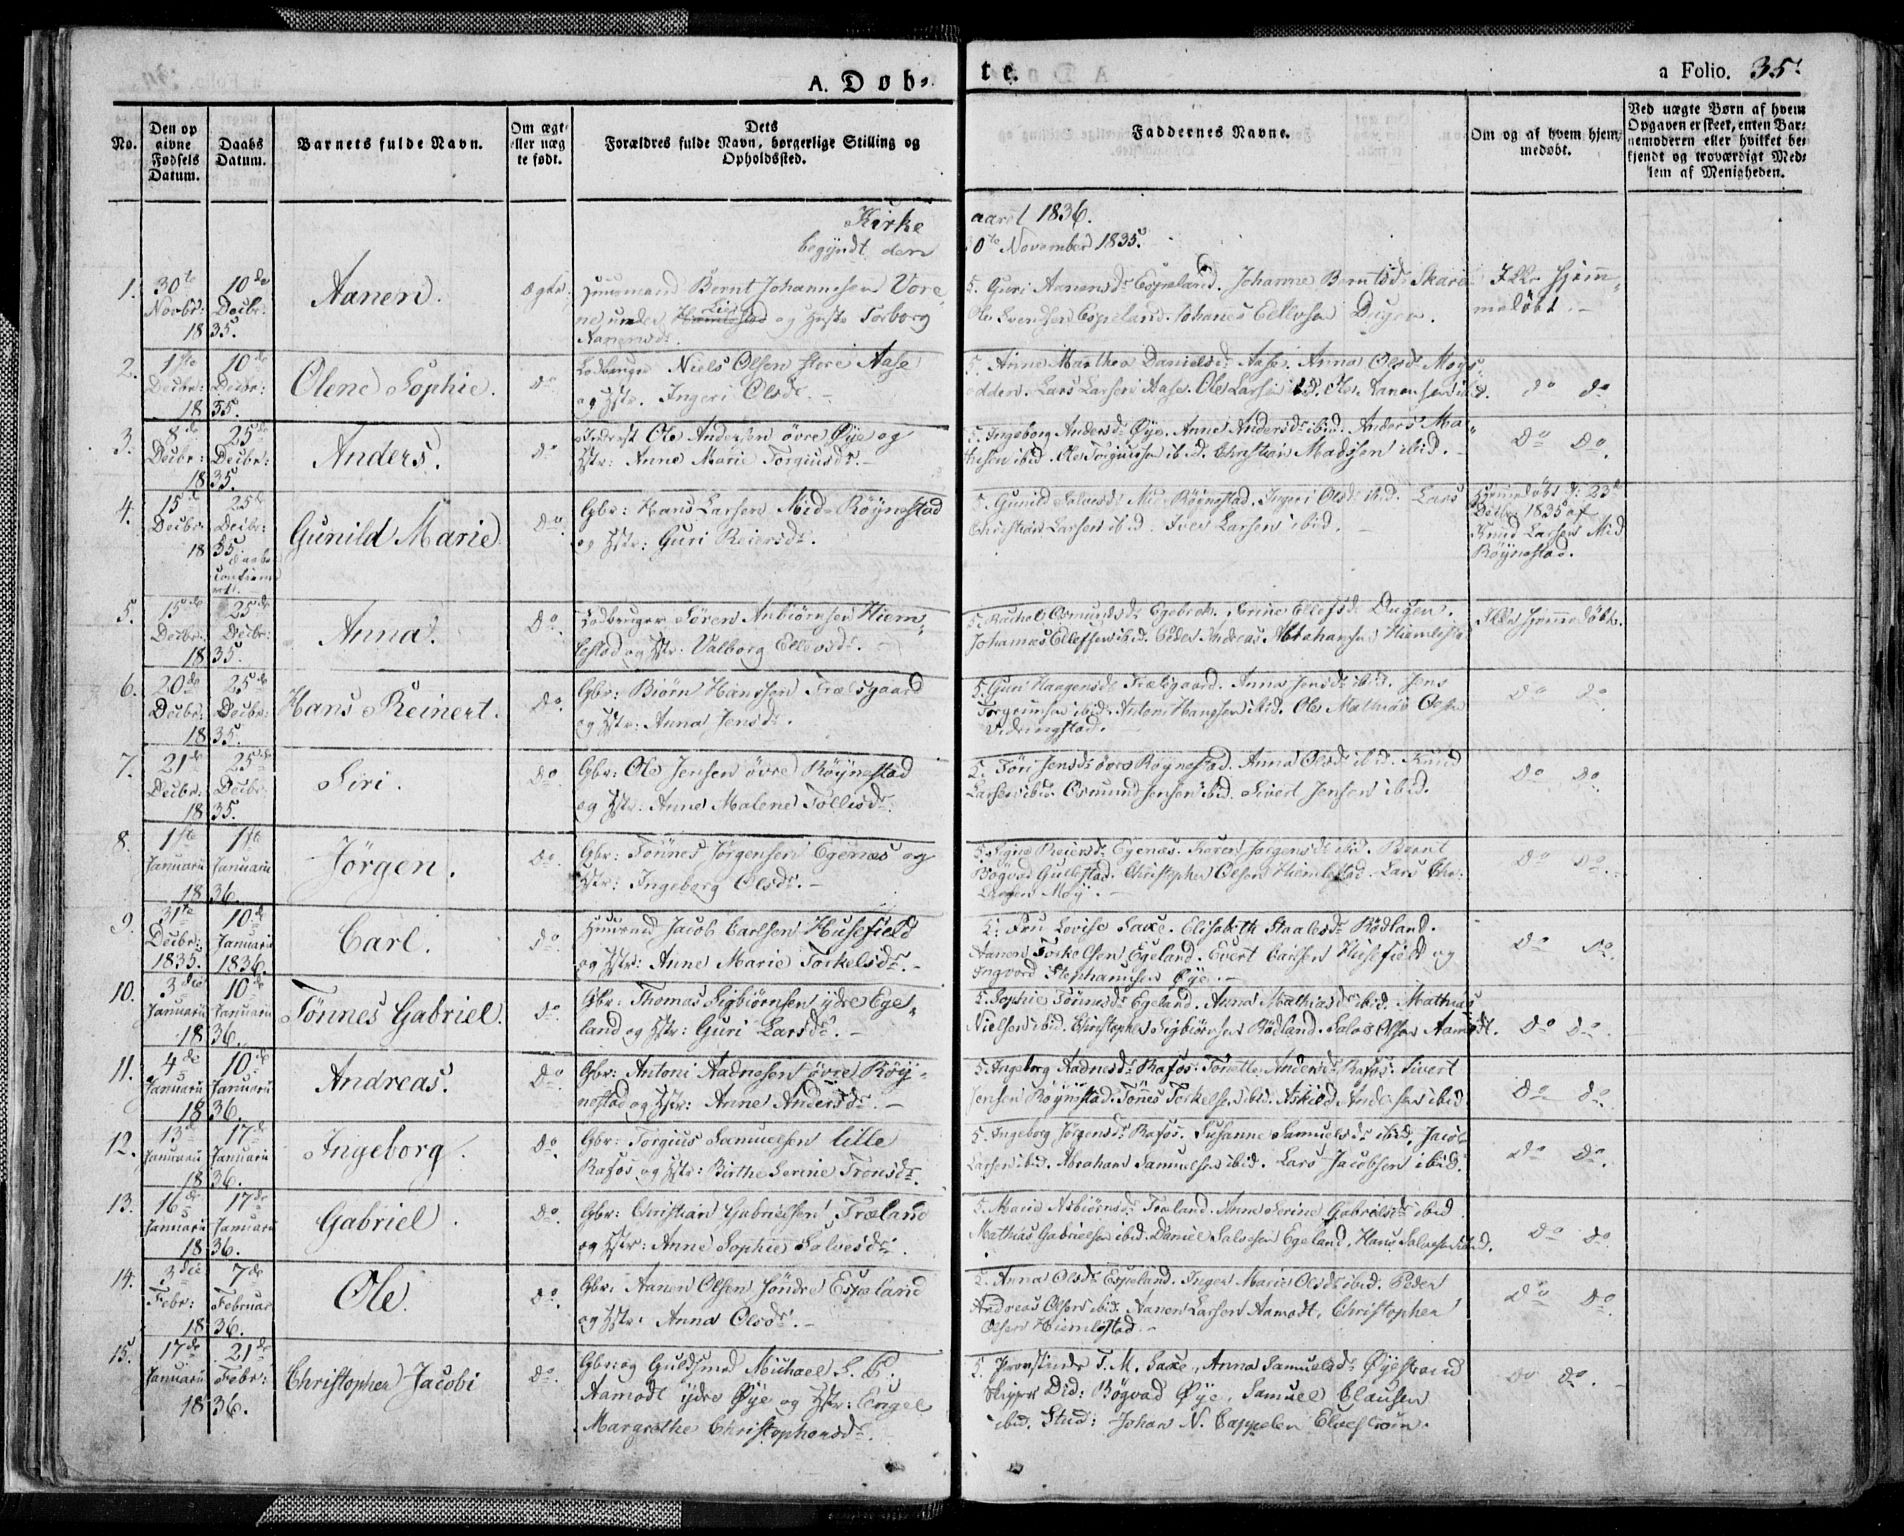 A. Døb-
te.
a Folio. 35.
No.
Den op
givne
Fødsels
Datum.
Daabs
Datum.
Barnets fulde Navn.
Om ægt-
eller uæg
te født.
Dets
Forældres fulde Navn, borgerlige Stilling og
Opholdssted.
Faddernes Navne.
Om og af hvem hjem-
medøbt.
Ved uægte Børn af hvem
Opgaven er skeet, enten Bar-
nemoderen eller hvilket be-
kjendt og troværdigt Med-
lem af Menigheden.
Kirke
aaret 1836.
begyndt den
November 1835.
1.
30te
Novbr:
1835.
10de
Decbr:
Aanen.
Huusmand Bernt Johannesen
under og Hstr Torborg
Aanensdr.
5. Guri Aanensdr Espeland. Johanne Berntsdr
Ole Svendsen Espeland. Johanes Ellevsen Dugen.
Ikke hjem-
medøbt.
2.
1ste
Decbr:
1835.
10de
Decbr:
Olene Sophie.
Do
Niels Olsen store Aase
og Hstr. Ingeri Olsdr.
5. Anne Marthea Danielsdr Aase. Anna Olsdr
Lars Larsen Aase. Ole Larsen ibd. Ole Aanensen ibid.
do do
3.
8de
Decbr:
1835.
25de
Decbr:
Anders.
Do
Inderst Ole Andersen øvre Øye og
Hstr: Anne Marie Torgiusdr.
5. Ingeborg Andersdr Øye. Anne Andersdr ibid. Anders
ibid. Ole Torgiusen ibid. Christian Madssen ibid.
Do Do.
4.
15de
Decbr:
1835.
25de
Decbr:
Daaben
confirme
ret.
Gunild Marie
Do.
Gbr: Hans Larsen Mid-Røynestad
og Hstr: Guri Reiersdr.
5. Gunild Salvesdr Mid Røynestad. Ingeri Olsdr ibid. Lars
Christian Larsen ibid. Iver Larsen ibid.
Hjemmedøbt d: 23de
Decbr 1835 af
Knud Larsen Mid
Røynestad.
5.
15de
Decbr.
1835.
25de
Decbr:
Anna.
Do.
Søren Anbiørnsen Hiem-
lestad og Hstr: Valborg Ellevsdr.
5. Rachel Osmundsdr Egebek. Serine Ellefsdr Dugen.
Johannes Ellefsen ibid. Peder Andreas Abrahamsen Hiemlestad
Ikke hjemmedøbt.
6.
20de
Decbr:
1835.
25de
Decbr:
Hans Reinert.
Do.
Gbr: Biørn Hanssen Trælsgaard
og Hstr: Anna Jensdr.
5. Guri Haagensdr Trælsgaard. Anna Jensdr ibid. Jens
Torgrimsen ibid. Antoni Hanssen ibid. Ole Mathias Olsen
Vidringstad.
Do Do.
7.
21de
Decbr:
1835.
25de
Decbr.
Siri.
Do
Gbr: Ole Jensen øvre Røynestad
og Hstr: Anne Malene Tollisdr.
5. Siri Jensdr øvre Røynestad. Anna Olsdr ibid. Knud
Larsen ibid. Osmund Jensen ibid. Sivert Jensen ibid.
Do Do.
8.
1ste
Januarii
1836.
1ste
Januarii
Jörgen.
Do.
Gbr: Tönnes Jørgensen Egenæs og
Hstr: Ingeborg Olsdr.
5. Signe Reiersdr Egenæs. Karen Jørgensdr ibid. Bernt
Bögvad Gullestad. Christopher Olsen Hiemlestad. Lars
Møy.
Do Do.
9.
31te
Decbr:
1835.
10de
Januarii
1836.
Carl.
Do.
Huusmd Jacob Carlsen Husefield
og Hstr: Anne Marie Torkelsdr.
5. Fru Lovise Saxe. Elisabeth Staalesdr Rødland.
Aanen Torkelsen Egeland. Evert Carlsen Husefield og
Ingvord Stephansen Øye.
Do Do.
10.
3die
Januarii
1836.
10de
Januarii
Tönnes Gabriel.
Do.
Gbr: Thomas Sigbiørnsen ydre Ege-
land og Hstr: Guri Larsdr.
5. Sophie Tönnesdr Egeland. Anna Mathiasdr ibid. Mathias
Nielsen ibid. Christopher Sigbiørnsen Rødland. Salve Olsen Aamodt.
Do Do.
11.
4de
Januarii
1836.
10de
Januarii
Andreas.
Do.
Gbr: Antoni Aadnesen øvre Røy-
nestad og Hstr: Anne Andersdr.
5. Ingeborg Aadnesdr Rafos. Tonette Andersdr Rafos. Sivert
Jensen Røynestad. Tönes Torkelsen ibid. Askild Andersen ibid.
Do Do.
12.
13de
Januarii
1836.
17de
Januarii
Ingeborg.
Do.
Gbr: Torgius Samuelsen lille
Rafos og Hstr: Birthe Serine Tronsdr.
5. Ingeborg Jørgensdr Rafos. Susanne Samuelsdr ibid. Jacob
Larsen ibid. Abraham Samuelsen ibid. Lars Jacobsen ibid.
Do Do.
13.
16de
Januarii
1836.
17de
Januarii
Gabriel.
Do.
Gbr: Christian Gabrielsen Træland
og Hstr: Anne Sophie Salvesdr.
5. Marie Asbiørnsdr Træland. Anne Serine Gabrielsdr ibid
Mathias Gabrielsen ibid. Daniel Salvesen Egeland. Hans Salvesen ibid.
Do Do.
14.
3die
Febr:
1836.
7de
Februar
Ole.
Do.
Gbr: Aanen Olsen söndre Espeland
og Hstr: Anna Olsdr.
5. Anna Olsdr Espeland. Inger Marie Olsdr ibid. Peder
Andreas Olsen ibid. Aanen Larsen Aamodt. Christopher
Olsen Hiemlestad.
Do Do.
15.
17de
Januarii
1836.
21de
Febr:
Christopher Jacobi
Do.
Gbr: og Guldsmed Michael S. C.
Aamodt ydre Øye og Hstr: Engel
Margrethe Christophersdr.
5. Provstinde T. M. Saxe. Anna Samuelsdr Øyestrand
Skipper Did: Bögvad Øye. Samuel Clausen
ibid. Stud: Johan N. Cappelen Elvestrøm.
Do Do.